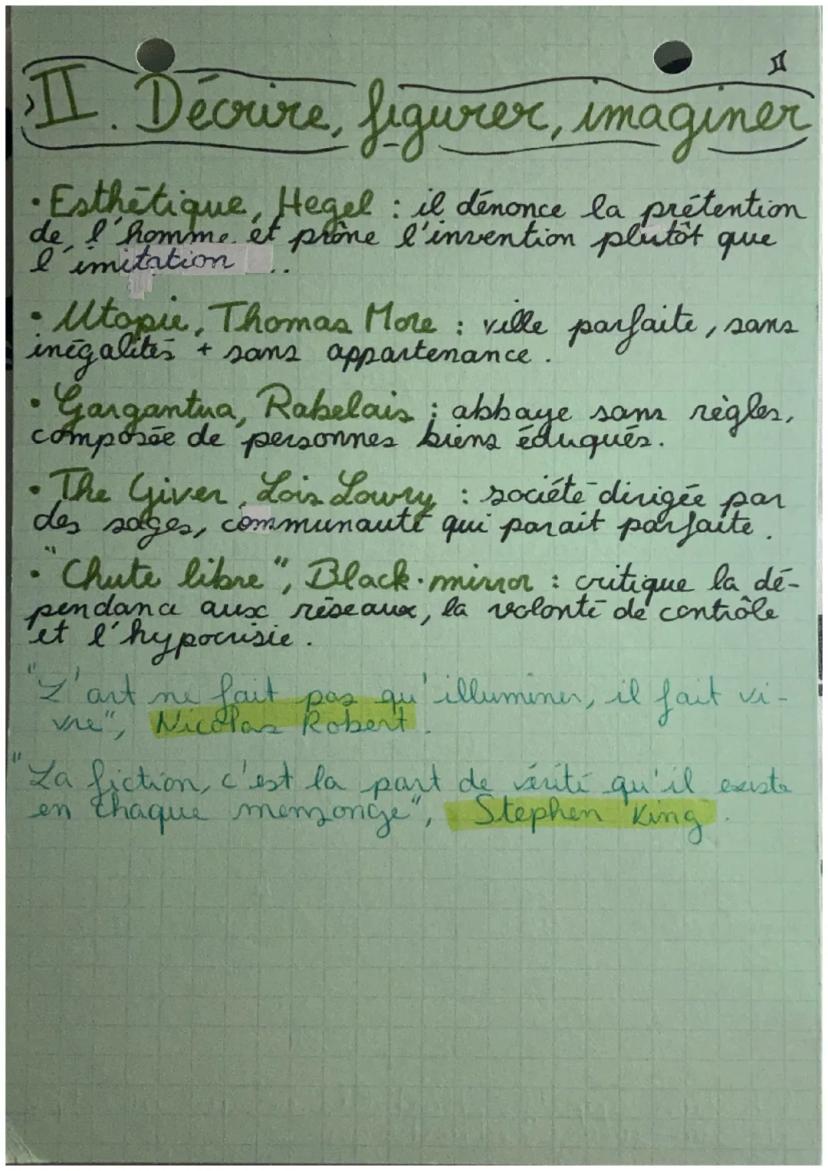 II
II. Décrire, figurer, imaginer
• Esthétique, Hegel : il dénonce la prétention
de l'homme et prône l'invention plutôt que
l'imitation ..
• Utopie, Thomas More : ville parfaite, sans
inégalités + sans appartenance.
• Gargantua, Rabelais : abbaye sans règles,
composée de personnes biens éduqués.
• The Giver, Lois Lowry : société dirigée par
des sages, communauté qui parait parfaite.
• "Chute libre", Black-mirror : critique la dé-
pendance aux réseaux, la volonté de contrôle
et l'hypocrisie.
"L'art ne fait pas qu'illuminer, il fait vi-
vre", Nicolas Robert.
"La fiction, c'est la part de vérité qu'il existe
en chaque mensonge", Stephen King.